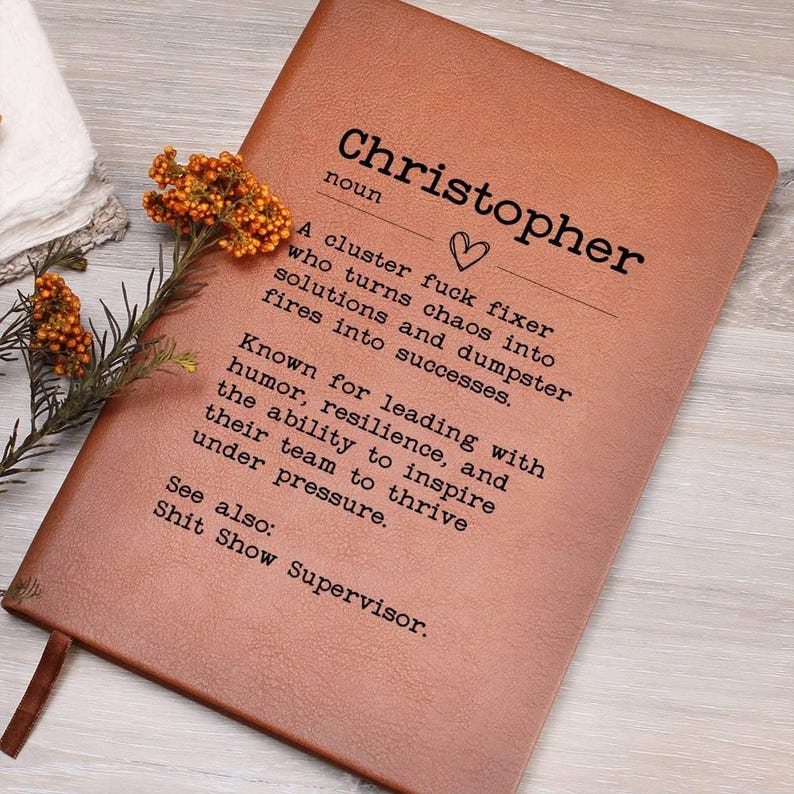 Christopher
noun
A cluster fuck fixer
who turns chaos into
solutions and dumpster
fires into successes.
Known for leading with
humor, resilience, and
the ability to inspire
their team to thrive
under pressure.
See also:
Shit Show Supervisor.